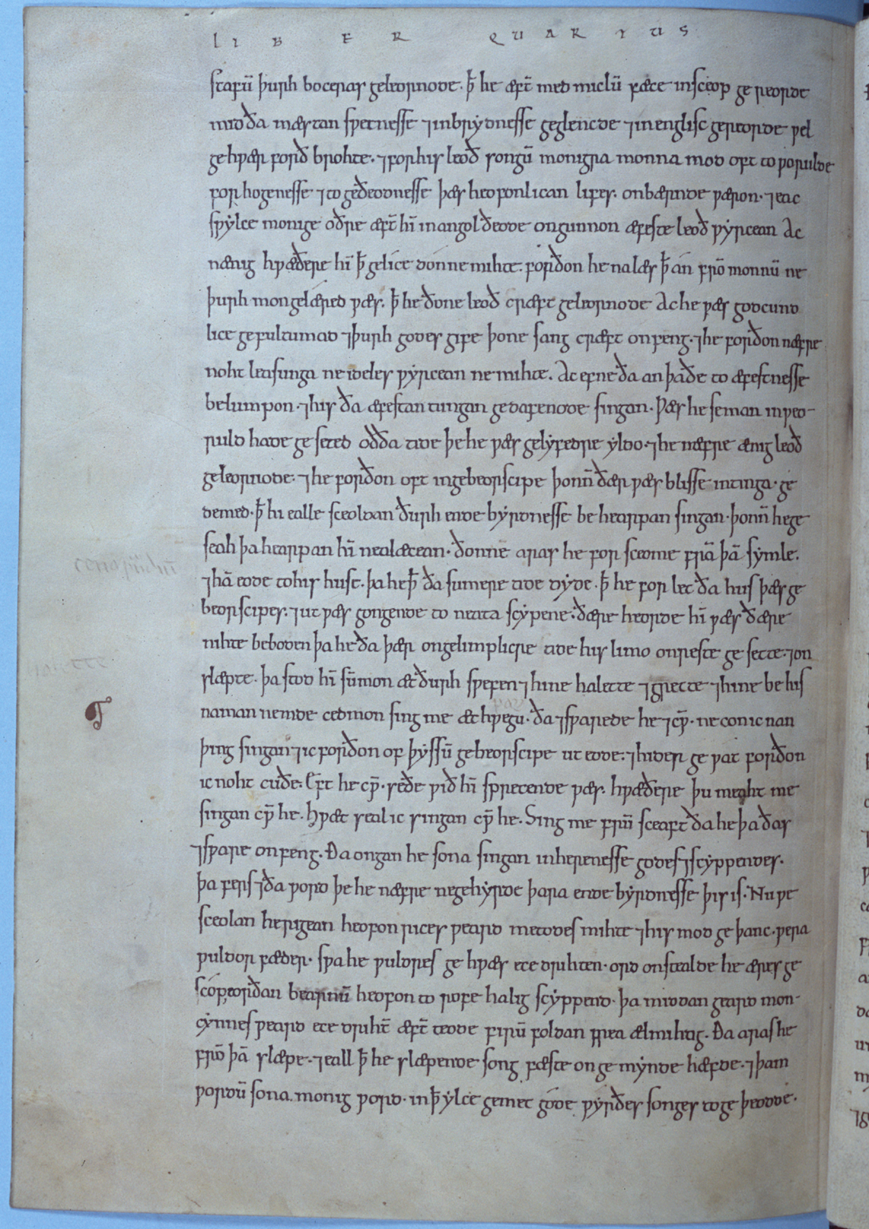 LIBER QUARTUS
stafū þurh boceras geleornode. ꝥ he æft̄ med miclū fæce inscop gereorde
mid ða mæstan swetnesse ⁊inbrydnesse geglencde ⁊inenglisc gereorde wel
gehwær forð brohte. ⁊forhis leoð songū monigra monna mod oft to woruldæ
forhogenesse ⁊to geðeodnesse þæs heofonlican lifes. onbærnde wæron. ⁊eac
swylce monige oðre æft̄ hī inangolðeode ongunnon æfeste leoð wyrcean Ac
nænig hwæðere hī ꝥ gelice donne mihte. forðon he nalæs ꝥ an frō monnū ne
þurh mon gelæred wæs. ꝥ he ðone leoð cræft geleornode Ac he wæs godcund
lice gefultumad ⁊þurh godes gife þone sang cræft onfeng. ⁊he forðon næfre
noht leasunga ne ideles wyrcean ne mihte. Ac efne ða an þaðe to æfestnesse
belumpon. ⁊his ða æfestan tungan gedafenode singan. Wæs he se man inweo-
ruld hade geseted oðða tide þe he wæs gelyfedre yldo. ⁊he næfre ænig leoð
geleornode. ⁊he forðon oft ingebeorscipe þonn̄ ðær wæs blisse intinga. ge
demed. ꝥ hi ealle sceoldan ðurh endebyrdnesse be hearpan singan. þonn̄ he ge
seah þa hearpan hī nealæcean. donne aras he for sceome frā þā symle.
⁊hā eode to his huse. þa he ꝥ ða sumere tide dyde. ꝥ he forlet ða hus þæs ge
beorscipes. ⁊ut wæs gongende to neata scypene. ðære heorde hī wæs ðære
nihte beboden þa he ða þær on gelimplicre tide his limo onreste gesette. ⁊on
slæpte. þa stod hī sūmon æt ðurh swefen ⁊hine halette ⁊grette ⁊hine be his
naman nemde cedmon sing me æthwegu. ða ⁊swarede he ⁊cw̄. ne con ic nan
þing singan ⁊ic forðon of þyssū gebeorscipe ut eode. ⁊hider gewat forðon
ic noht cuðe. Eft he cw̄. seðe wið hī sprecende wæs. hwæðere þu meaht me
singan cw̄ he. Hwæt seal ic singan cw̄ he. Sing me frūsceaft ða he þa ðas
⁊sware onfeng. Ða ongan he sona singan inherenesse godes ⁊scyppendes.
þa fers ⁊ða word þe he næfre ne gehyrde þara endebyrdnesse þis is. Nu we
sceolan herigean heofonrices weard metodes mihte ⁊his modgeþanc. wera
wuldor fæder. swa he wuldres gehwæs ece drihten. ord onstealde he æres ge
scop eorðan bearnū heofon to rofe halig scyppend. þa middangeard mon-
cynnes weard ece driht̄ æft̄ teode firū foldan frea ælmihtig. Ða aras he
frō þā slæpe. ⁊eall ꝥ he slæpende song fæste on gemynde hæfde. ⁊þam
wordū sona. monig word. in ꝥ ylce gemet gode wyrðes songes toge þeodde.